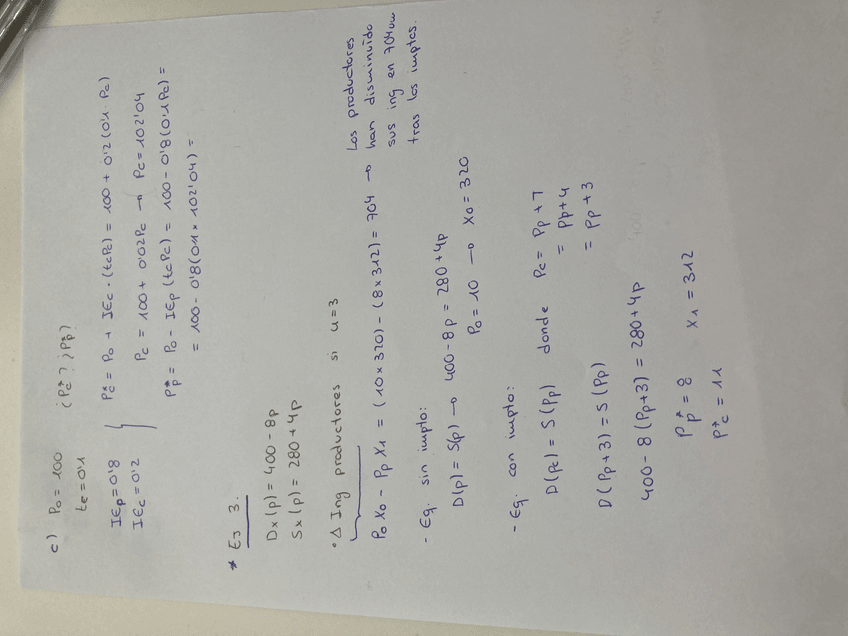 c) P₀ = 100 ¿Pc*? ¿Pp*?
tc = 0'1
IEp = 0'8
IEc = 0'2
Pc* = P₀ + IEc · (tcPc) = 100 + 0'2 (0'1 · Pc)
Pc = 100 + 0'02Pc → Pc = 102'04
Pp* = P₀ - IEp (tcPc) = 100 - 0'8 (0'1Pc) =
= 100 - 0'8 (0'1 x 102'04) =
* Ej 3.
Dx (p) = 400 - 8p
Sx (p) = 280 + 4p
· Δ Ing productores si u = 3
P₀ X₀ - Pp X₁ = (10 x 320) - (8 x 312) = 704 → Los productores
han disminuido
sus ing en 704um
tras los imptos.
- Eq. sin impto:
D(p) = S(p) → 400 - 8p = 280 + 4p
P₀ = 10 → X₀ = 320
- Eq. con impto:
D(pc) = S(Pp) donde Pc = Pp + T
= Pp + u
= Pp + 3
D (Pp + 3) = S (Pp)
400 - 8 (Pp + 3) = 280 + 4p
Pp* = 8 X₁ = 312
Pc* = 11